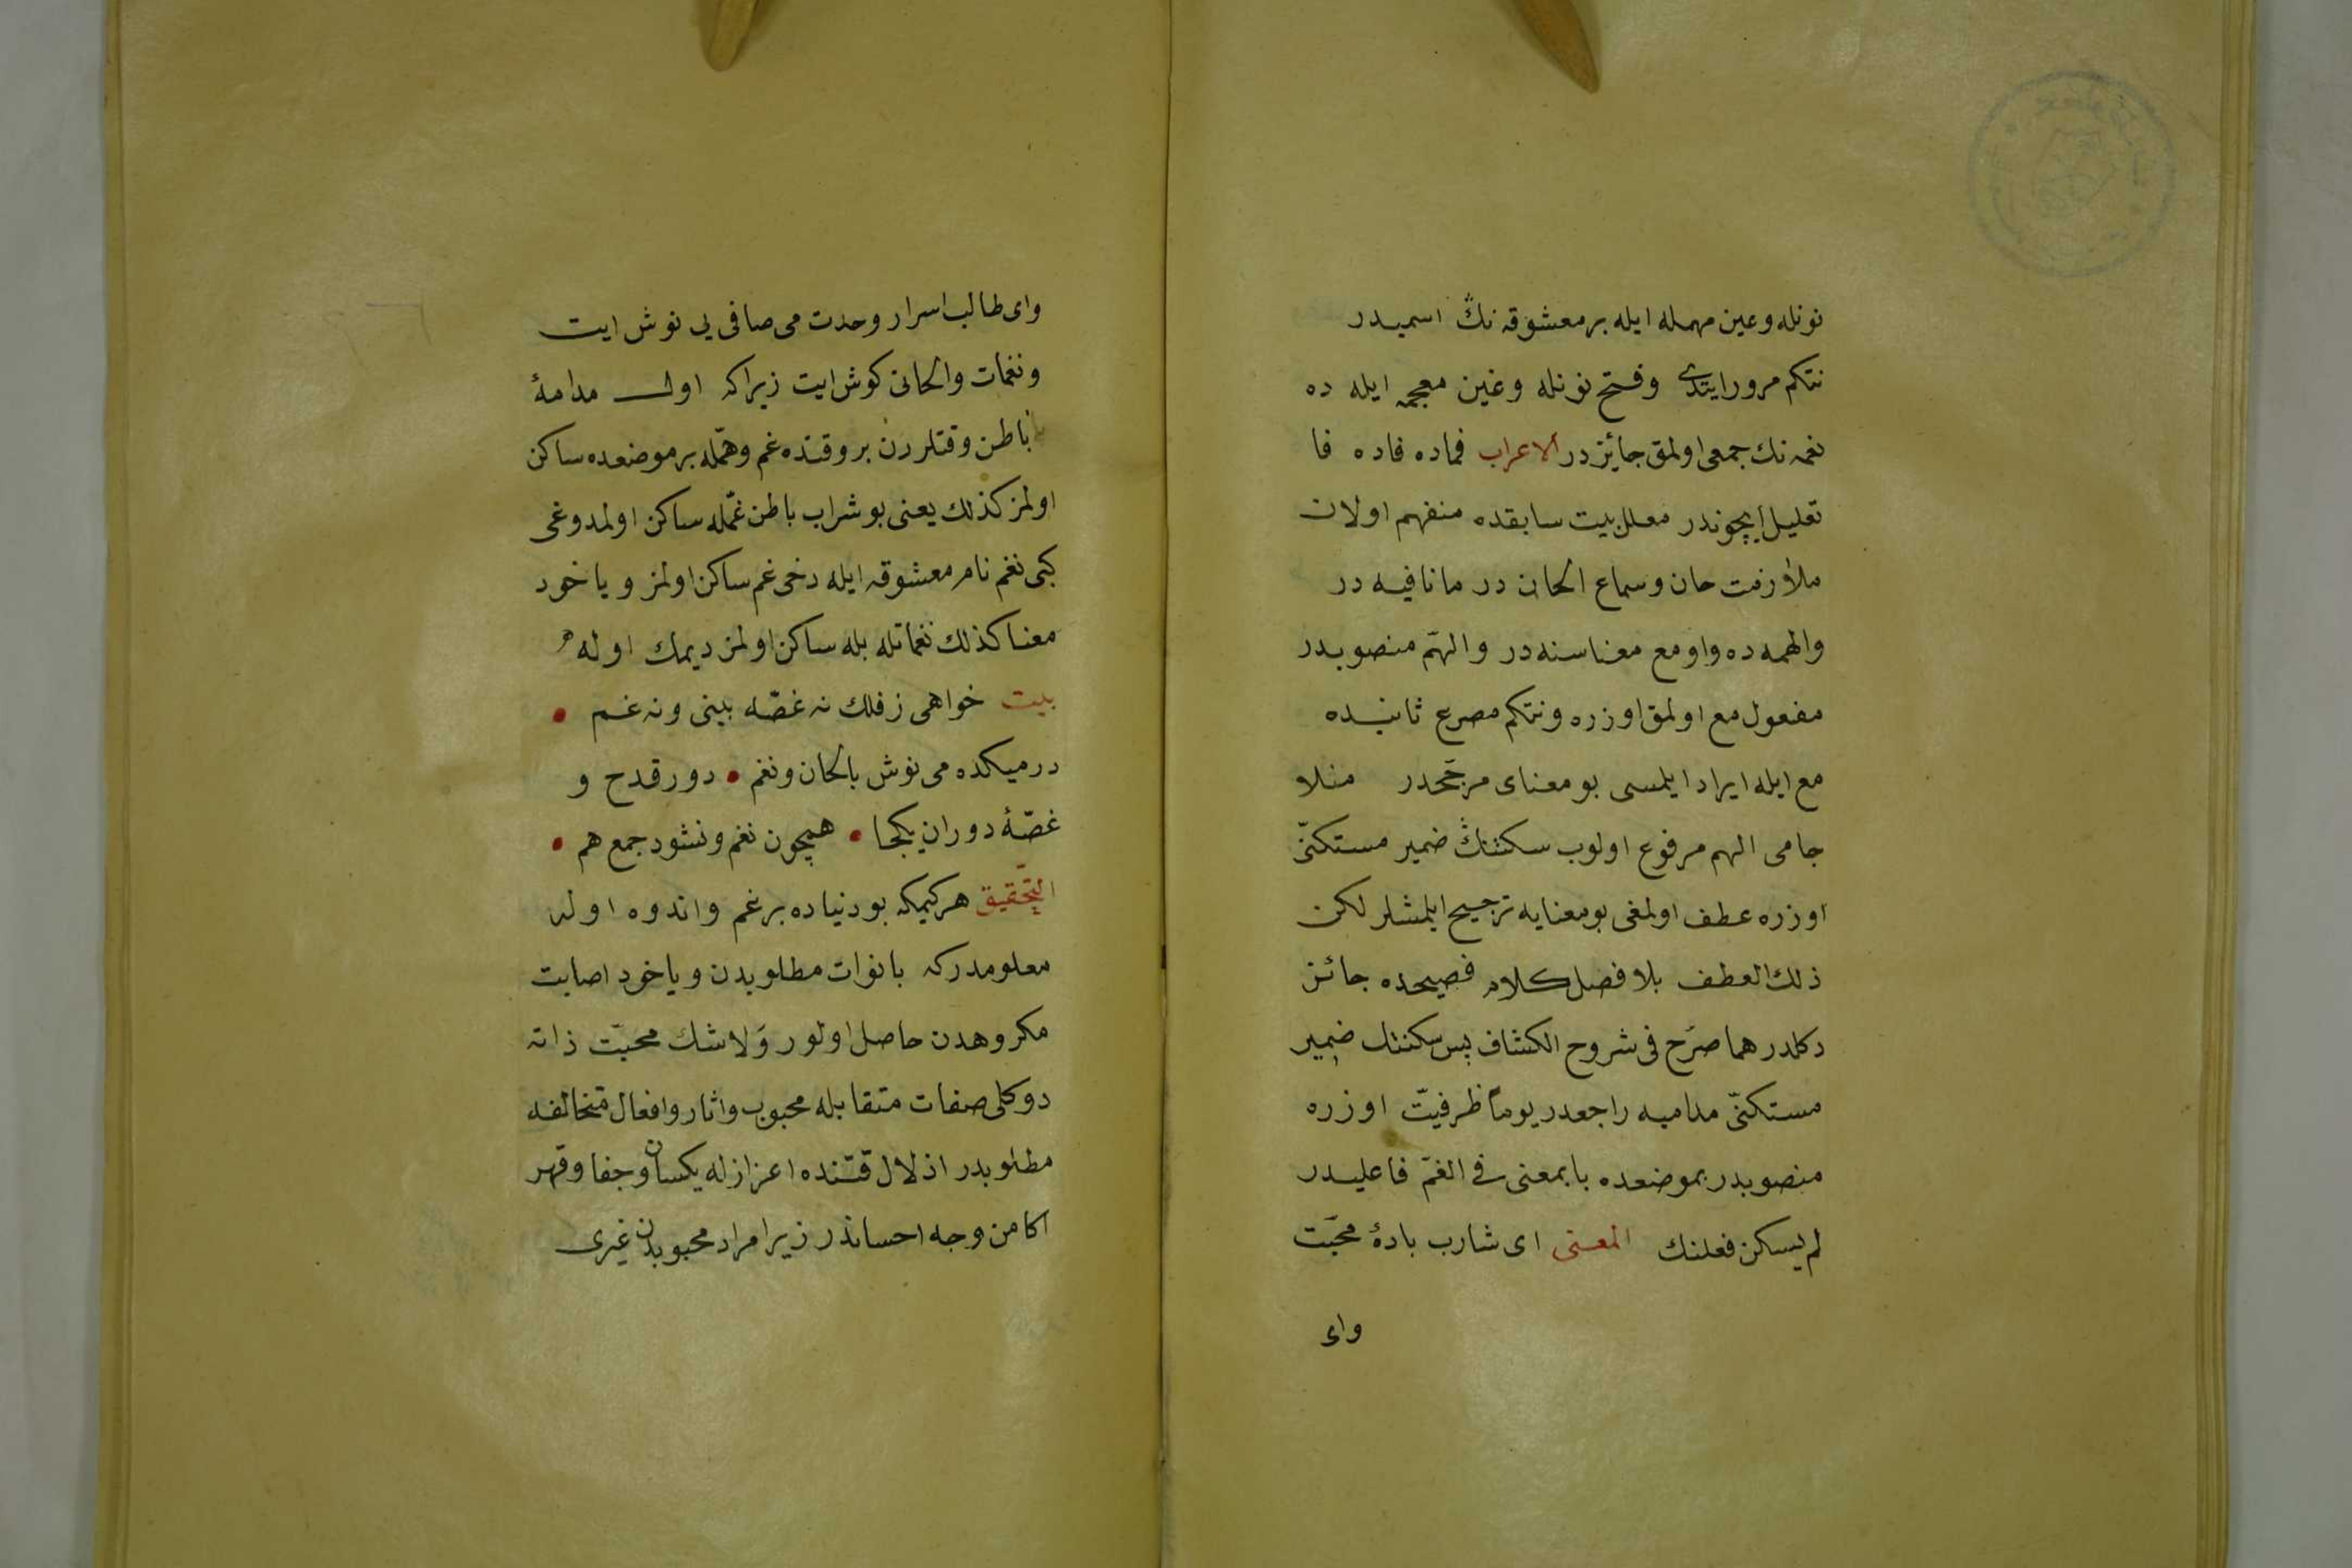 نونله وعین مهمله ایله بر معشوقه نڭ اسمیدر
نتکم مرور ایتدی وفتح نونله وغین معجمه ایله ده
نغمه نك جمعی اولمق جایٔزدر الاعراب فماده فاده فا
تعلیل ایچوندر معلل بیت سابقده منفهم اولان
ملازمت حان وسماع الحان در ما نافیه در
والهمه ده واو مع معناسنه در والهمّ منصوبدر
مفعول مع اولمق اوزره ونتکم مصرع ثانیده
مع ایله ایراد ایلمسی بو معنای مرجّحدر منلا
جامی الهم مرفوع اولوب سکنتنڭ ضمیر مستکنّی
اوزره عطف اولمغی بو معنایه ترجیح ایلمشلر لکن
ذلك العطف بلا فصل کلام فصیحده جائز
دکلدر هما صرّح فی شروح الکشاف پس سکنتك ضمیر
مستکنّی مدامیه راجعدر یوماً ظرفیّت اوزره
منصوبدر بموضعده با بمعنی فی الغمّ فاعلیدر
لم یسکن فعلنك المعنی ای شارب بادهٔ محبّت
وای
وای طالب اسرار وحدت می صافی یی نوش ایت
ونغمات والحانی کوش ایت زیرا که اول مدامهٔ
باطن وقتلردن بر وقتده غم وهمّله بر موضعده ساکن
اولمز کذلك یعنی بو شراب باطن غمّله ساکن اولمدوغی
کبی نغم نام معشوقه ایله دخی غم ساکن اولمز ویا خود
معنا کذلك نغماتله بله ساکن اولمز دیمك اوله
بیت خواهی ز فلك نه غصّه بینی و نه غم •
در میکده می نوش بالحان ونغم • دور قدح و
غصّهٔ دوران یکجا • همچون نغم ونشود جمع هم •
التّحقیق هر کیمکه بو دنیاده بر غم واندوه اوله
معلومدر که یا فوات مطلوبدن ویا خود اصابت
مکروهدن حاصل اولور ولا شك محبّت ذاته
دوکلی صفات متقابله محبوب واثار وافعال متخالفه
مطلوبدر اذلال قتنده اعزازله یکسان وجفا وقهر
اکا من وجه احساندر زیرا مراد محبوبدن غیری